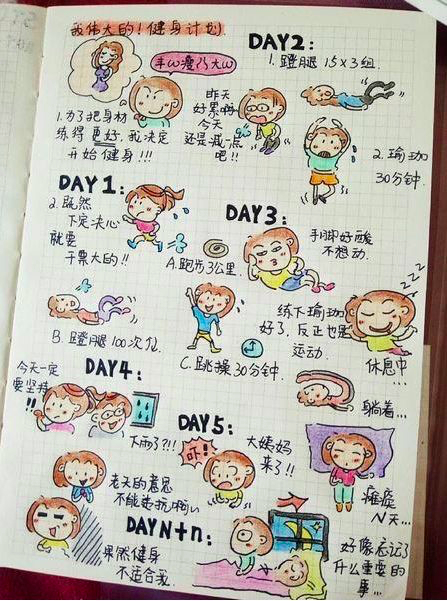 我伟大的!健身计划
丰ω瘦乃大ω
1.为了把身材
练得更好,我决定
开始健身!!!
DAY1:
2.既然
下定决心
就要
干票大的!!
A.跑步3公里.
B.蹬腿100次/化
C.跳操30分钟.
DAY2:
1.蹬腿15×3组.
昨天
好累啊
今天
还是减一点
吧!!
2.瑜珈
30分钟.
DAY3:
手脚好酸
不想动.
练下瑜珈
好了.反正也是
运动.
zzz
休息中...
躺着...
DAY4:
今天一定
要坚持
!!
下雨了?!!
老天的意思
不能违抗啊
果然健身
不适合我.
DAY5:
吓!
大姨妈
来了!!
瘫痪
N天...
DAYN+n:
好像忘记了
什么重要的
事...